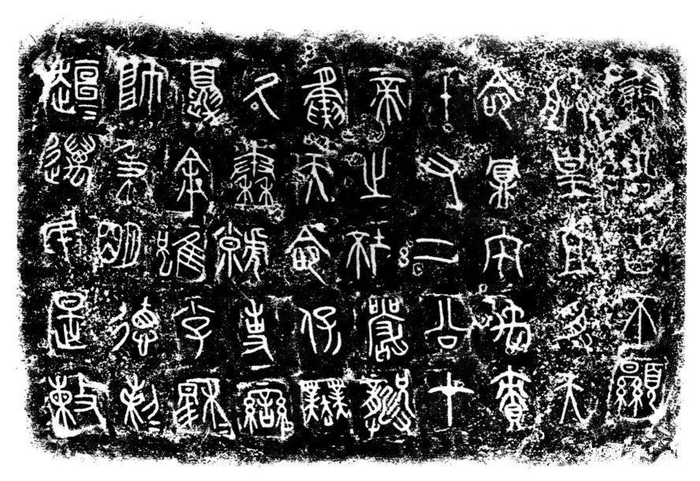 秦公曰不顯
朕皇且受天
命鼏宅禹賷
十又二公才
帝之坏嚴龏
夤天命保業
氒秦虩事蠻
夏余雖小子穆=
帥秉明德剌=
趄=邁民是敕